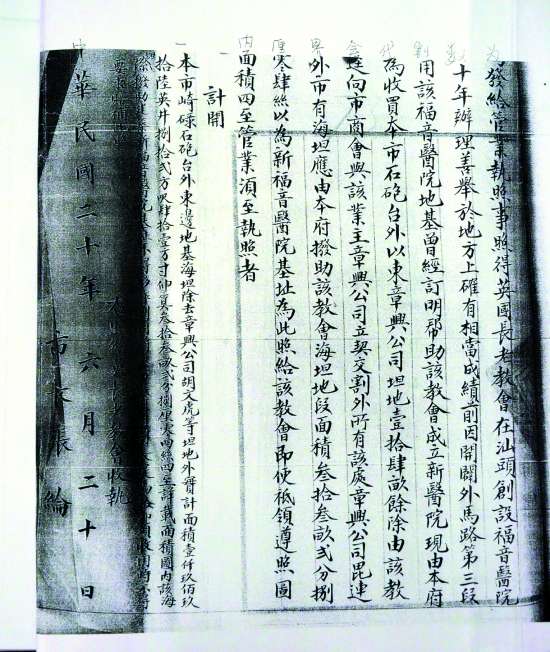 為發給管業執照事照得英國長老教會在汕頭創設福音醫院
十年辦理善舉於地方上確有相當成績前因開闢外馬路第三段
用該福音醫院地基曾經訂明幫助該教會成立新醫院現由本府
為收買本市石砲台外以東章興公司坦地壹拾肆畝餘除由該教
逕向市商會與該業主章興公司立契交割外所有該處章興公司毘連
外市有海坦應由本府撥助該教會海坦地段面積叁拾叁畝弍分捌
零肆絲以為新福音醫院基址為此照給該教會即便祗領遵照圖
內面積四至管業湏至執照者
計開
一本市崎碌石砲台外東邊地基海坦除去章興公司胡文虎等坦地外實計面積壹仟玖佰玖
拾陸英井捌拾弍方呎肆拾壹方寸伸算叁拾叁畝弍分捌厘零四絲四至詳載面積圖內該海
收執
中華民國二十年六月二十日
市長張綸